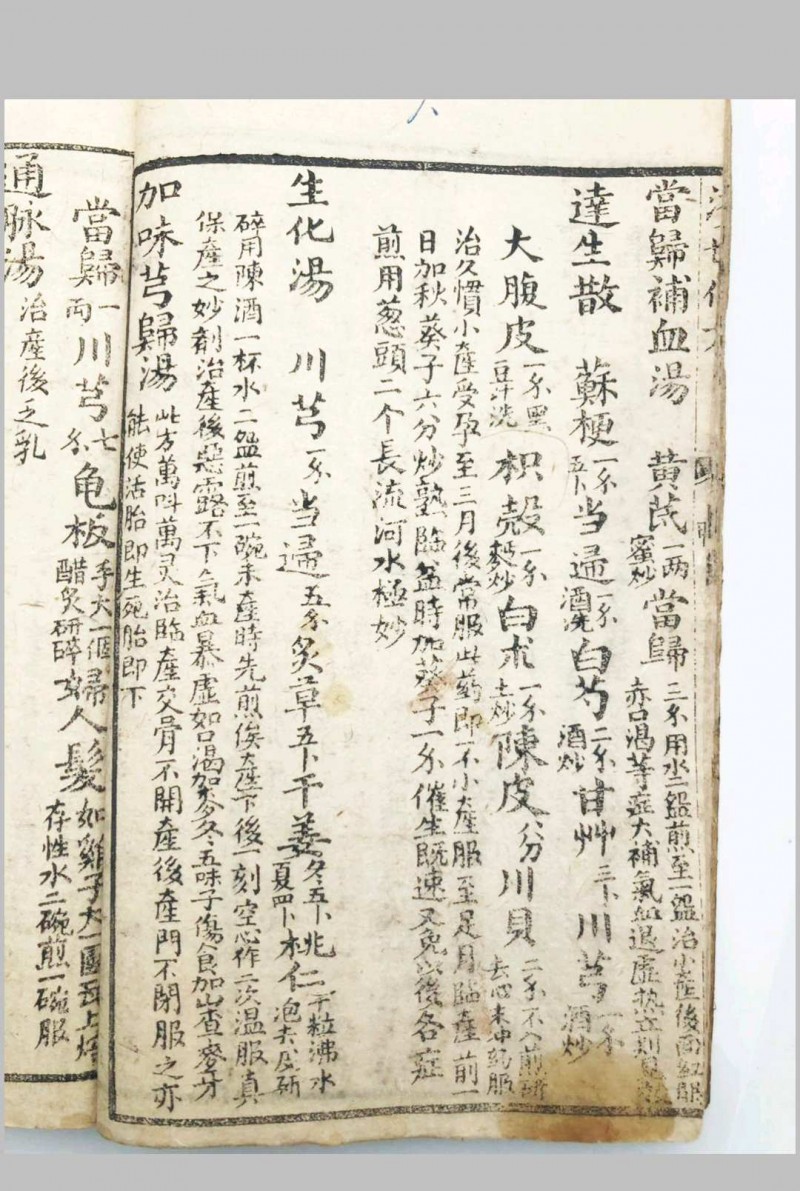 當歸補血湯 黃芪一两蜜炒 當歸三尒用水二盌煎至一盌治小產後面紅眼
赤口渴等症大補氣血退虛热立刻見
達生散 蘇梗一尒五卜 当归一尒酒洗 白芍二尒酒炒 甘艸三卜 川芎一尒酒炒
大腹皮一尒黑豆汁洗 枳殻一尒麸炒 白朮一尒土炒 陳皮八分 川貝二尒不入煎研去心末冲药服
治久慣小產受孕至三月後常服此药即不小產服至足月臨產前一
日加秋葵子六分炒熟臨盆時加葵子一尒催生既速又免以後各症
煎用葱頭二个長流河水極妙
生化湯 川芎一尒 当归五尒 炙草五卜 干姜冬五卜夏四卜 桃仁十粒沸水泡去皮研
碎用陳酒一杯水二盌煎至一碗未產時先煎俟產下後一刻空心作二次温服真
保產之妙剤治產後惡露不下氣血暴虛如口渴加麥冬五味子傷食加山查麥牙
加味芎歸湯 此方萬叫萬灵治臨產交骨不開產後產門不閉服之亦
能使活胎即生死胎即下
當歸一両 川芎七尒 龟板手大一個醋炙研碎 婦人髮如雞子大一團瓦上焙存性水二碗煎一碗服
通脉湯 治產後乏乳